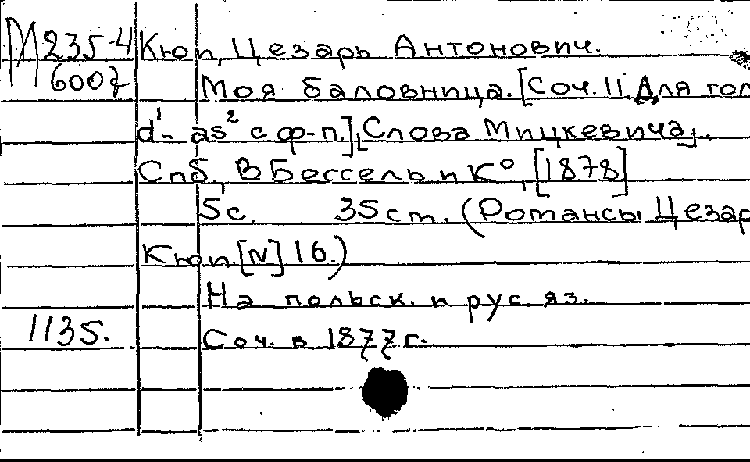 М 235-4 Кюи, Цезарь Антонович.
6007 Моя баловница. [Соч. 11. Для гол
d¹- as² с ф-п.] [Слова Мицкевича].
Спб., В Бессель и К⁰, [1878]
5с. 35 см. (Романсы Цезар
Кюи [N] 16.)
На польск. и рус. яз.
1135. Соч. в 1877 г.